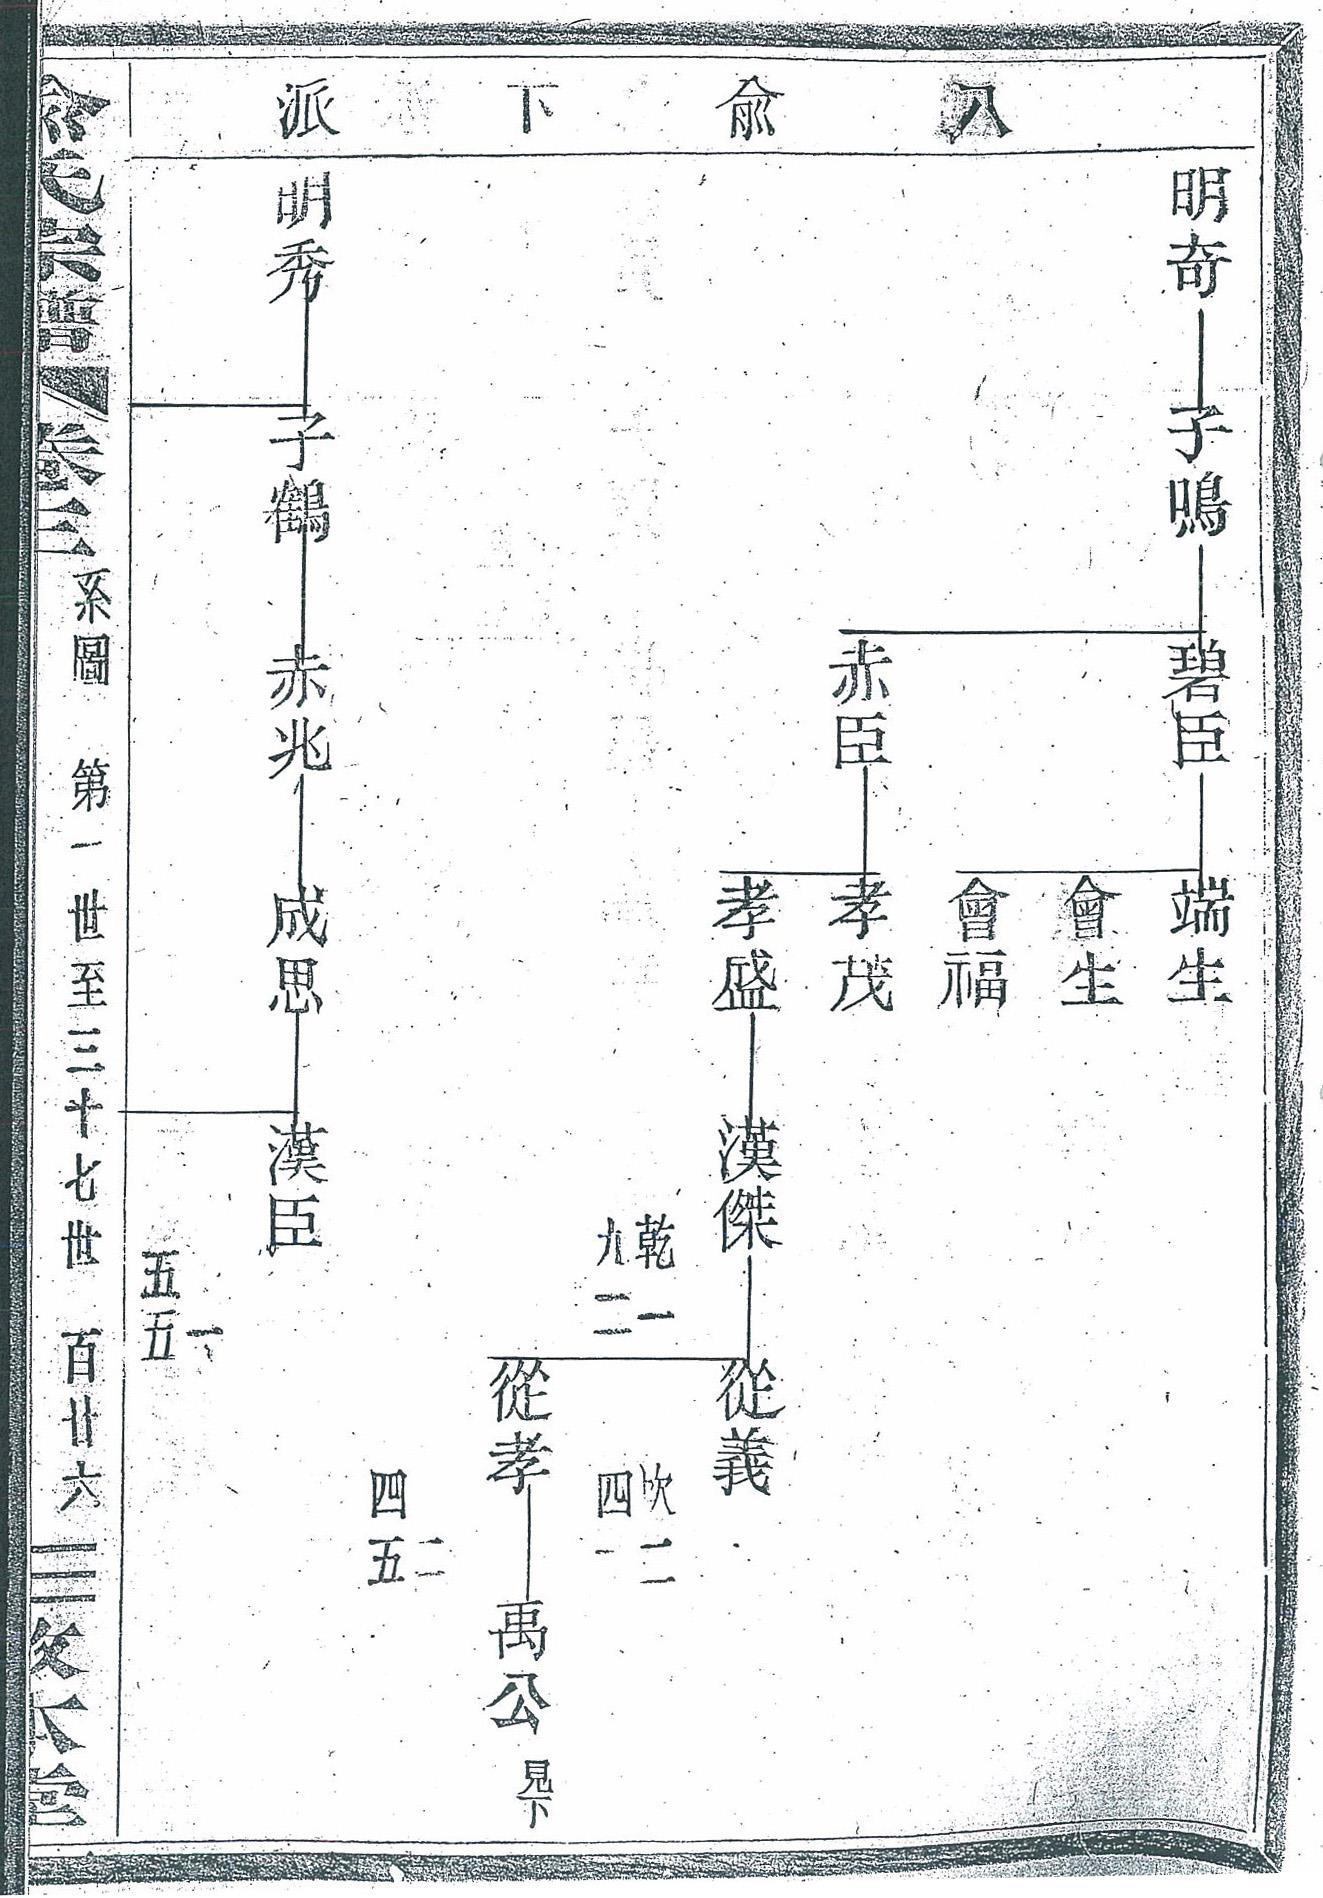 八俞下派
明奇
子鳴
碧臣
赤臣
端生
會生
會福
孝茂
孝盛
漢傑
乾一
九二
從義
從孝
坎二
四一
禹公
見下
二
四五
明秀
子鶴
赤兆
成思
漢臣
一
五五
俞氏宗譜
卷三
系圖 第一世至三十七世 百廿六
敦本堂